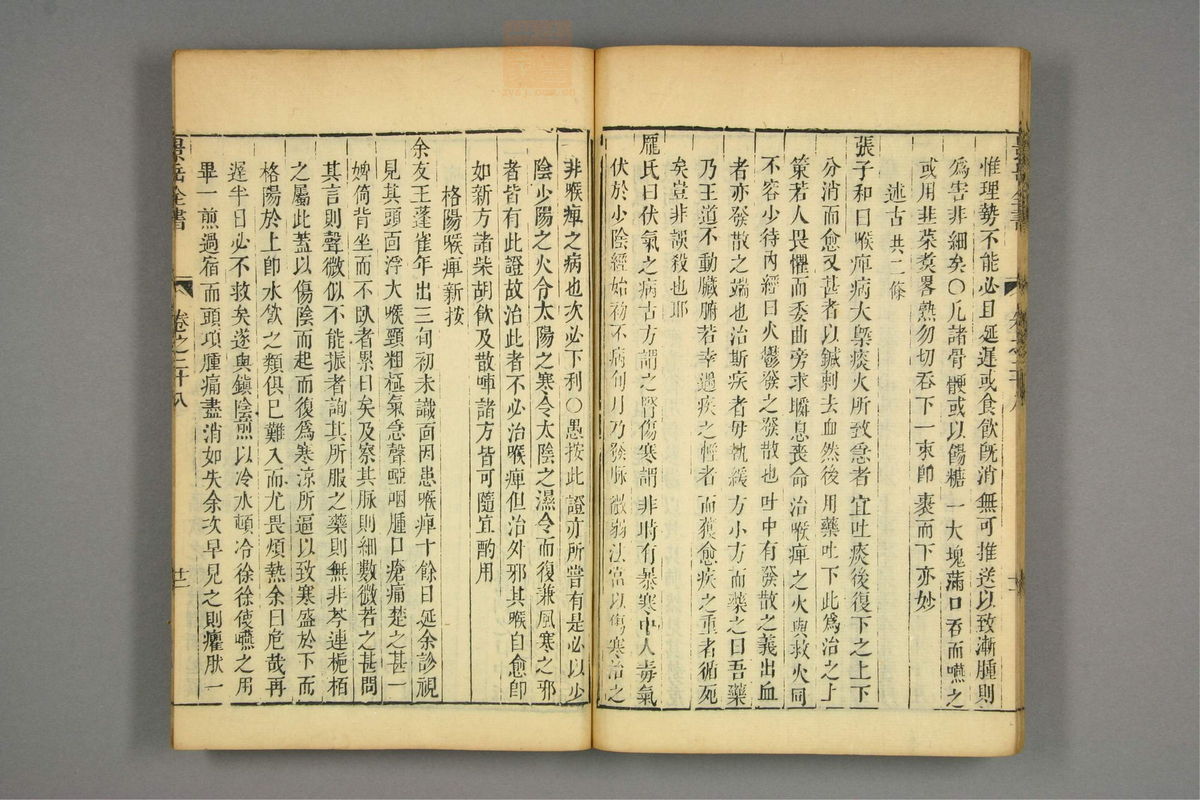 惟理勢不能必且延遲或食飲旣消無可推送以致漸腫則
爲害非細矣○凡諸骨髁或以餳糖一大塊滿口吞而嚥之
或用韭菜煑畧熟勿切吞下一束卽裹而下亦妙
述古共二條
張子和曰喉痺病大槩痰火所致急者宜吐痰後復下之上下
分消而愈又甚者以鍼刺去血然後用藥吐下此爲治之上
策若人畏懼而委曲旁求瞬息喪命治喉痺之火與救火同
不容少待內經曰火鬱發之發散也吐中有發散之義出血
者亦發散之端也治斯疾者毋執緩方小方而藥之曰吾藥
乃王道不動臟腑若幸遇疾之輕者而獲愈疾之重者循死
矣豈非誤殺也耶
龐氏曰伏氣之病古方謂之腎傷寒謂非時有暴寒中人毒氣
伏於少陰經始初不病旬月乃發脉微弱法當以傷寒治之
非喉痺之病也次必下利○愚按此證亦所嘗有是必以少
陰少陽之火令太陽之寒令太陰之濕令而復兼風寒之邪
者皆有此證故治此者不必治喉痺但治外邪其喉自愈卽
如新方諸柴胡飲及散唾諸方皆可隨宜酌用
格陽喉痺新按
余友王蓬雀年出三旬初未識面因患喉痺十餘日延余診視
見其頭面浮大喉頸粗極氣急聲啞咽腫口瘡痛楚之甚一
婢倚背坐而不臥者累日矣及察其脉則細數微弱之甚問
其言則聲微似不能振者詢其所服之藥則無非芩連梔栢
之屬此蓋以傷陰而起而復爲寒涼所逼以致寒盛於下而
格陽於上卽水飲之類俱已難入而尤畏煩熱余曰危哉再
遲半日必不救矣遂與鎮陰煎以冷水頓冷徐徐使嚥之用
畢一煎過宿而頭項腫痛盡消如失余次早見之則癯肰一
景岳全書
卷之二十八
廿二